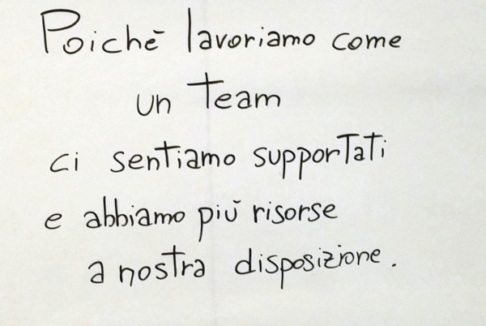 Poichè lavoriamo come
un team
ci sentiamo supportati
e abbiamo più risorse
a nostra disposizione.